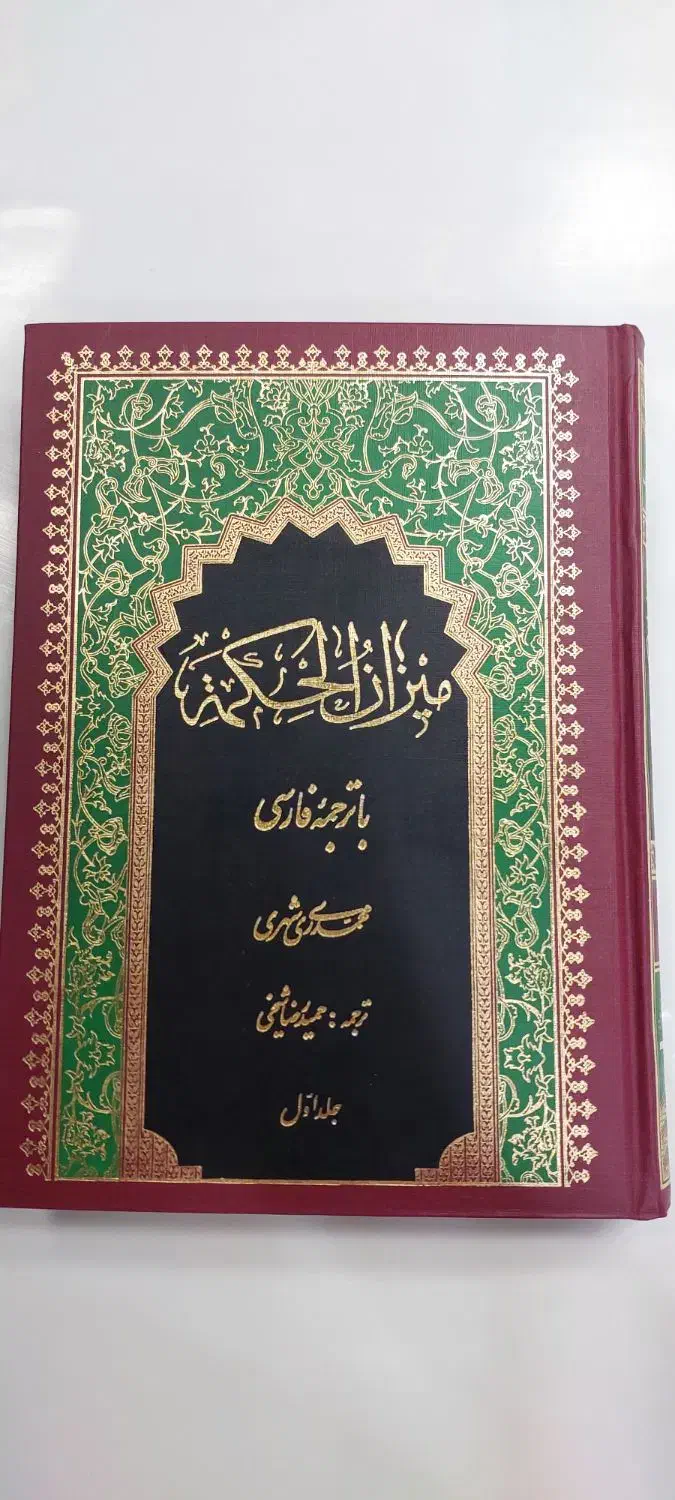 میزانُ الحِکمَة
با ترجمۀ فارسی
محمّدی ری شهری
ترجمه : حمیدرضا شیخی
جلد اوّل